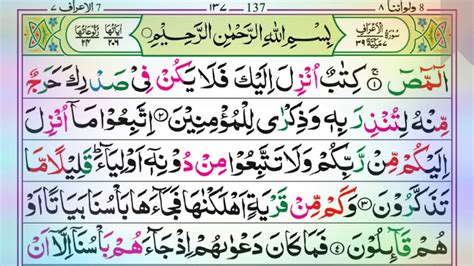 ٨ ولواننا ٨ ١٣٧ 137 ٧ الاعراف 7
سُوْرَةُ الْاَعْرَافِ مَكِّيَّةٌ ٣٩ بِسْمِ اللهِ الرَّحْمٰنِ الرَّحِيْمِ اٰيَاتُهَا ٢٠٦ رُكُوْعَاتُهَا ٢٤
الٓمّٓصٓ ۚ ١ كِتٰبٌ اُنْزِلَ اِلَيْكَ فَلَا يَكُنْ فِيْ صَدْرِكَ حَرَجٌ
مِّنْهُ لِتُنْذِرَ بِهٖ وَذِكْرٰى لِلْمُؤْمِنِيْنَ ٢ اِتَّبِعُوْا مَآ اُنْزِلَ
اِلَيْكُمْ مِّنْ رَّبِّكُمْ وَلَا تَتَّبِعُوْا مِنْ دُوْنِهٖٓ اَوْلِيَآءَ ؕ قَلِيْلًا مَّا
تَذَكَّرُوْنَ ٣ وَكَمْ مِّنْ قَرْيَةٍ اَهْلَكْنٰهَا فَجَآءَهَا بَاْسُنَا بَيَاتًا اَوْ
هُمْ قَآئِلُوْنَ ٤ فَمَا كَانَ دَعْوٰىهُمْ اِذْ جَآءَهُمْ بَاْسُنَآ اِلَّآ اَنْ